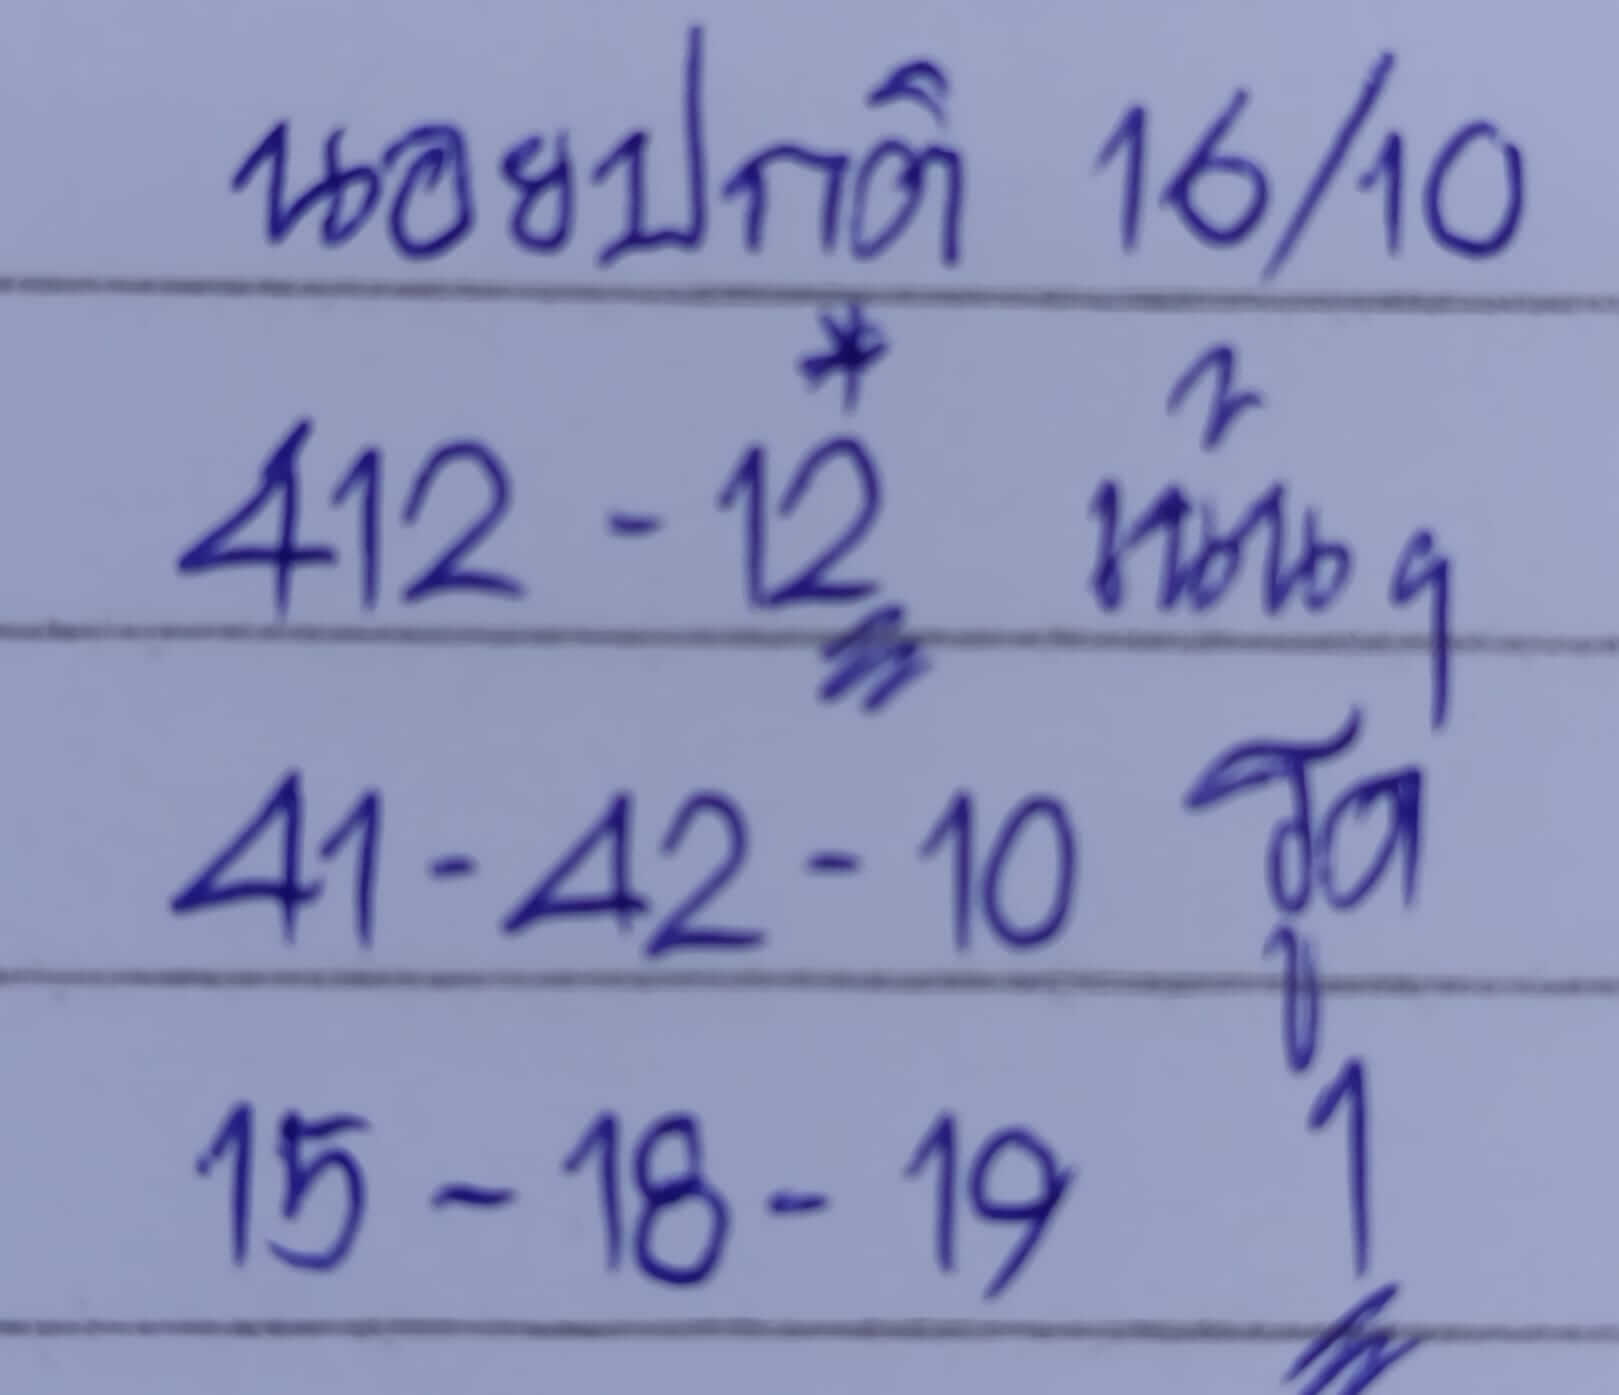 นอยปกติ 16/10
*
412 - 12 เน้นๆ
41 - 42 - 10 รูด
15 - 18 - 19 1